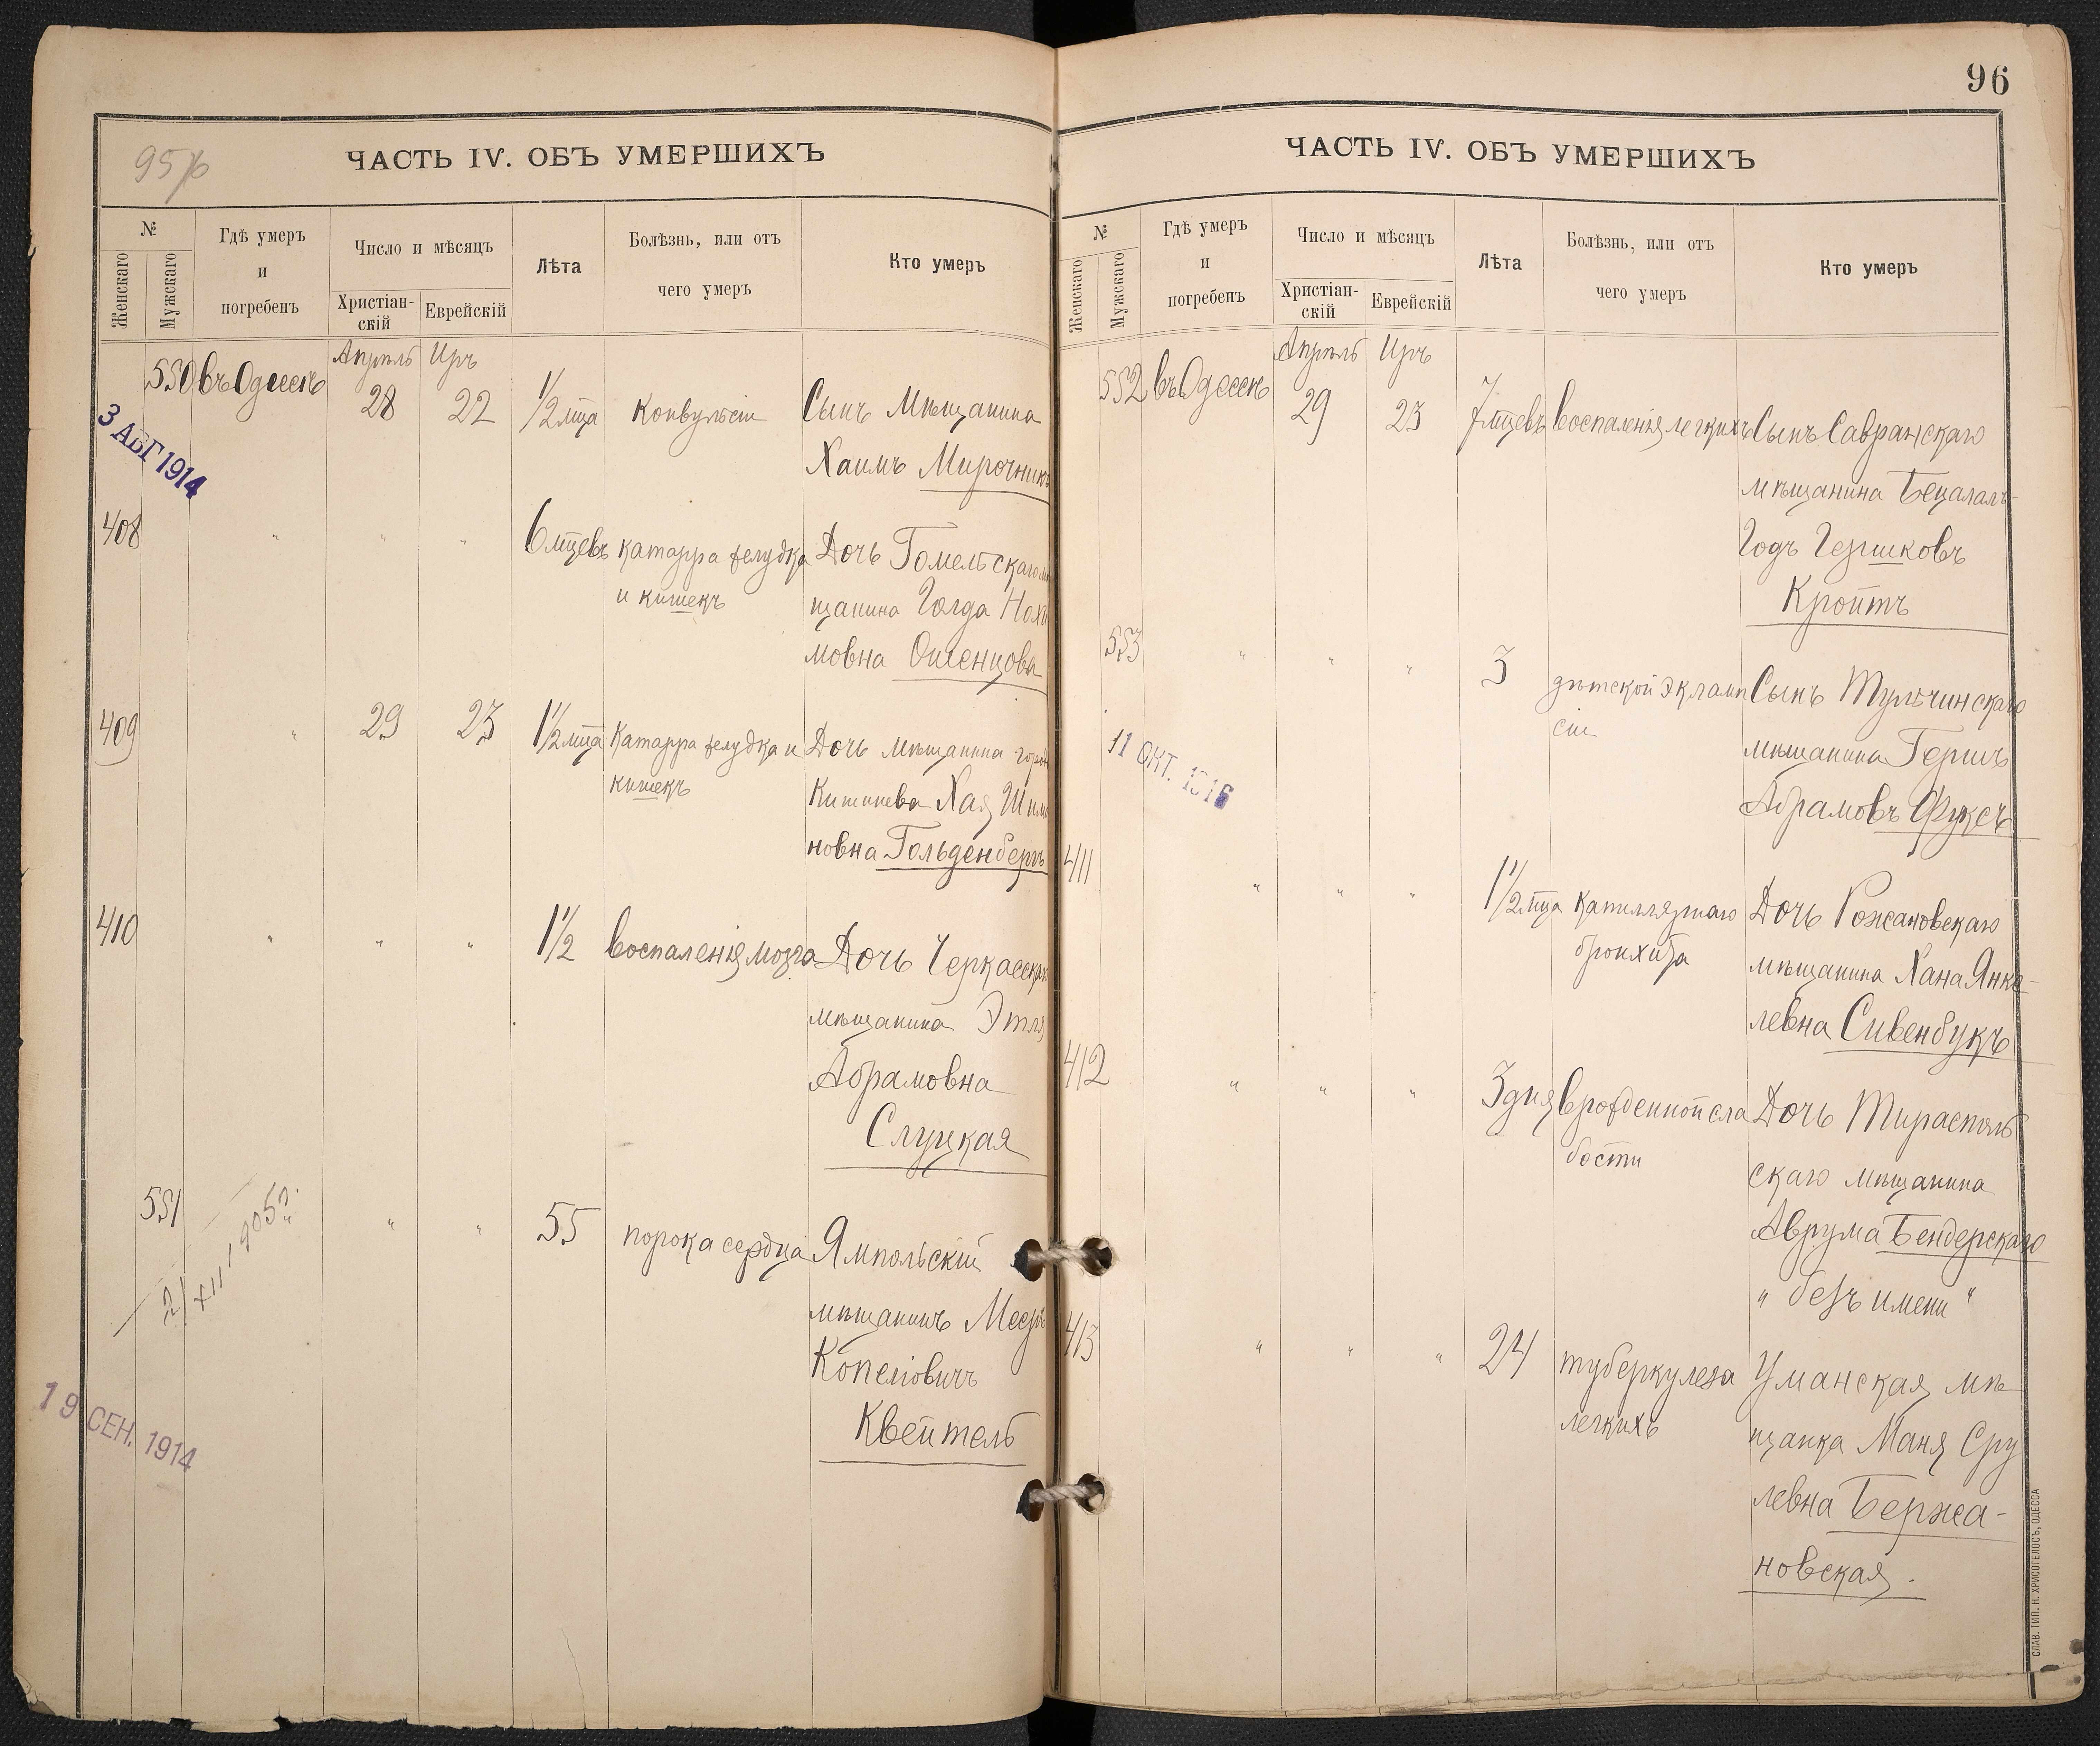 95/6
ЧАСТЬ IV. ОБЪ УМЕРШИХЪ
№
Женскаго
Мужскаго
Гдѣ умеръ
и
погребенъ
Число и мѣсяцъ
Христіан-
скій
Еврейскій
Лѣта
Болѣзнь, или отъ
чего умеръ
Кто умеръ
Апрѣль Иръ
550 въ Одессѣ 28 22 1/2 мца конвульсіи Сынъ Мѣщанина
Хаимъ Мирочникъ
3 АВГ 1914
408 " " " 6 мцевъ катарра желудка Дочь Гомельскаго мѣ
и кишекъ щанина Голда Нохи
мовна Ошенцова
409 " 29 23 1 1/2 мца катарра желудка и Дочь мѣщанина города
кишекъ Кишинева Хая Шимо
новна Гольденбергъ
410 " " " 1 1/2 воспаленія мозга Дочь Черкасскаго
мѣщанина Этля
Абрамовна
Слуцкая
551 " " " 55 порока сердца Ямпольскій
мѣщанинъ Мееръ
Копеліовичъ
Квейтель
21/XII 1905 г.
19 СЕН. 1914
96
ЧАСТЬ IV. ОБЪ УМЕРШИХЪ
№
Женскаго
Мужскаго
Гдѣ умеръ
и
погребенъ
Число и мѣсяцъ
Христіан-
скій
Еврейскій
Лѣта
Болѣзнь, или отъ
чего умеръ
Кто умеръ
Апрѣль Иръ
552 въ Одессѣ 29 23 7 мцевъ воспаленія легкихъ Сынъ Савранскаго
мѣщанина Бецалалъ-
Годъ Гершковъ
Кройтъ
553 " " " 3 дѣтской эклами Сынъ Тульчинскаго
сіи мѣщанина Гершъ
Абрамовъ Фуксъ
11 ОКТ. 1916
411 " " " 1 1/2 мца капиллярнаго Дочь Рожановскаго
бронхита мѣщанина Хана Янке-
левна Сивенбукъ
412 " " " 3 дня врожденной сла Дочь Тирасполь
бости скаго мѣщанина
Аврума Бендерскаго
" безъ имени "
413 " " " 24 туберкулеза Уманская мѣ
легкихъ щанка Маня Сру
левна Бержа-
новская.
СЛАВ. ТИП. Н. ХРИСОГЕЛОСЪ, ОДЕССА